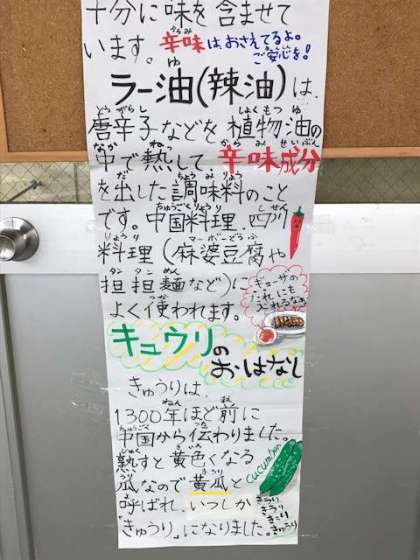 十分に味を含ませて
います。辛味はおさえてるよ。
ご安心を!
ラー油(辣油)は、
唐辛子などを植物油の
中で熱して辛味成分
を出した調味料のこと
です。中国料理、四川
料理(麻婆豆腐や
担担麺など)に
よく使われます。
ギョーザの
たれにも
入れるなぁ
キュウリの
おはなし
きゅうりは、
1300年ほど前に
中国から伝わりました。
熟すと黄色くなる
瓜なので黄瓜と
呼ばれ、いつしか
"きゅうり"になりました。
cucumber
きうり
きうり
きゅうり